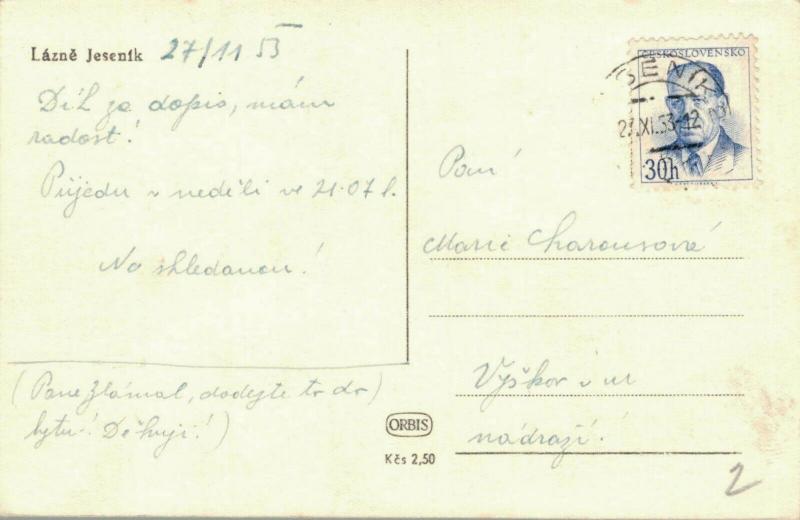 Lázně Jeseník 27/11 53
Dík za dopis, mám
radost!
Přijedu v neděli ve 21.07 h.
Na shledanou!
(Pane Zlámal, dodejte to do
bytu! Děkuji!)
ČESKOSLOVENSKO
SENÍK
27.XI.53-12
30h
Paní
Marie Charousová
Vyškov
nádraží!
ORBIS
Kčs 2,50
2